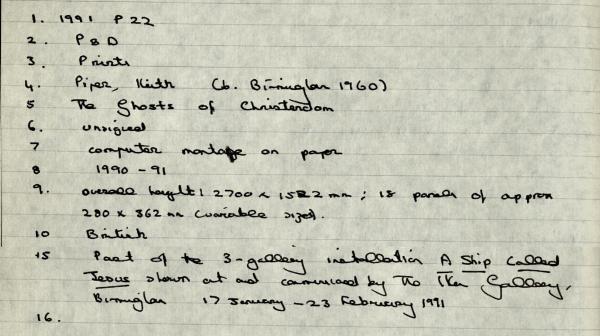 1. 1991 P 22
2. P & D
3. Prints
4. Piper, Keith (b. Birmingham 1960)
5 The Ghosts of Christendom
6. unsigned
7 computer montage on paper
8 1990 - 91
9. overall height: 2700 x 1522 mm ; 18 panels of approx
280 x 362 mm (variable sizes).
10 British
15 Part of the 3-gallery installation A Ship Called
Jesus shown at and commissioned by The Ikon Gallery,
Birmingham 17 January - 23 February 1991
16.